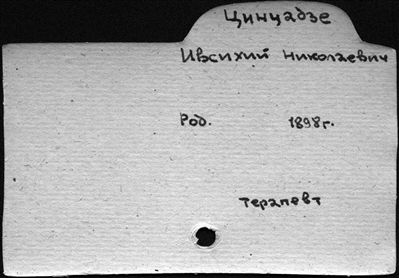 Цинцадзе
Ивсихий Николаевич
Род. 1898г.
терапевт